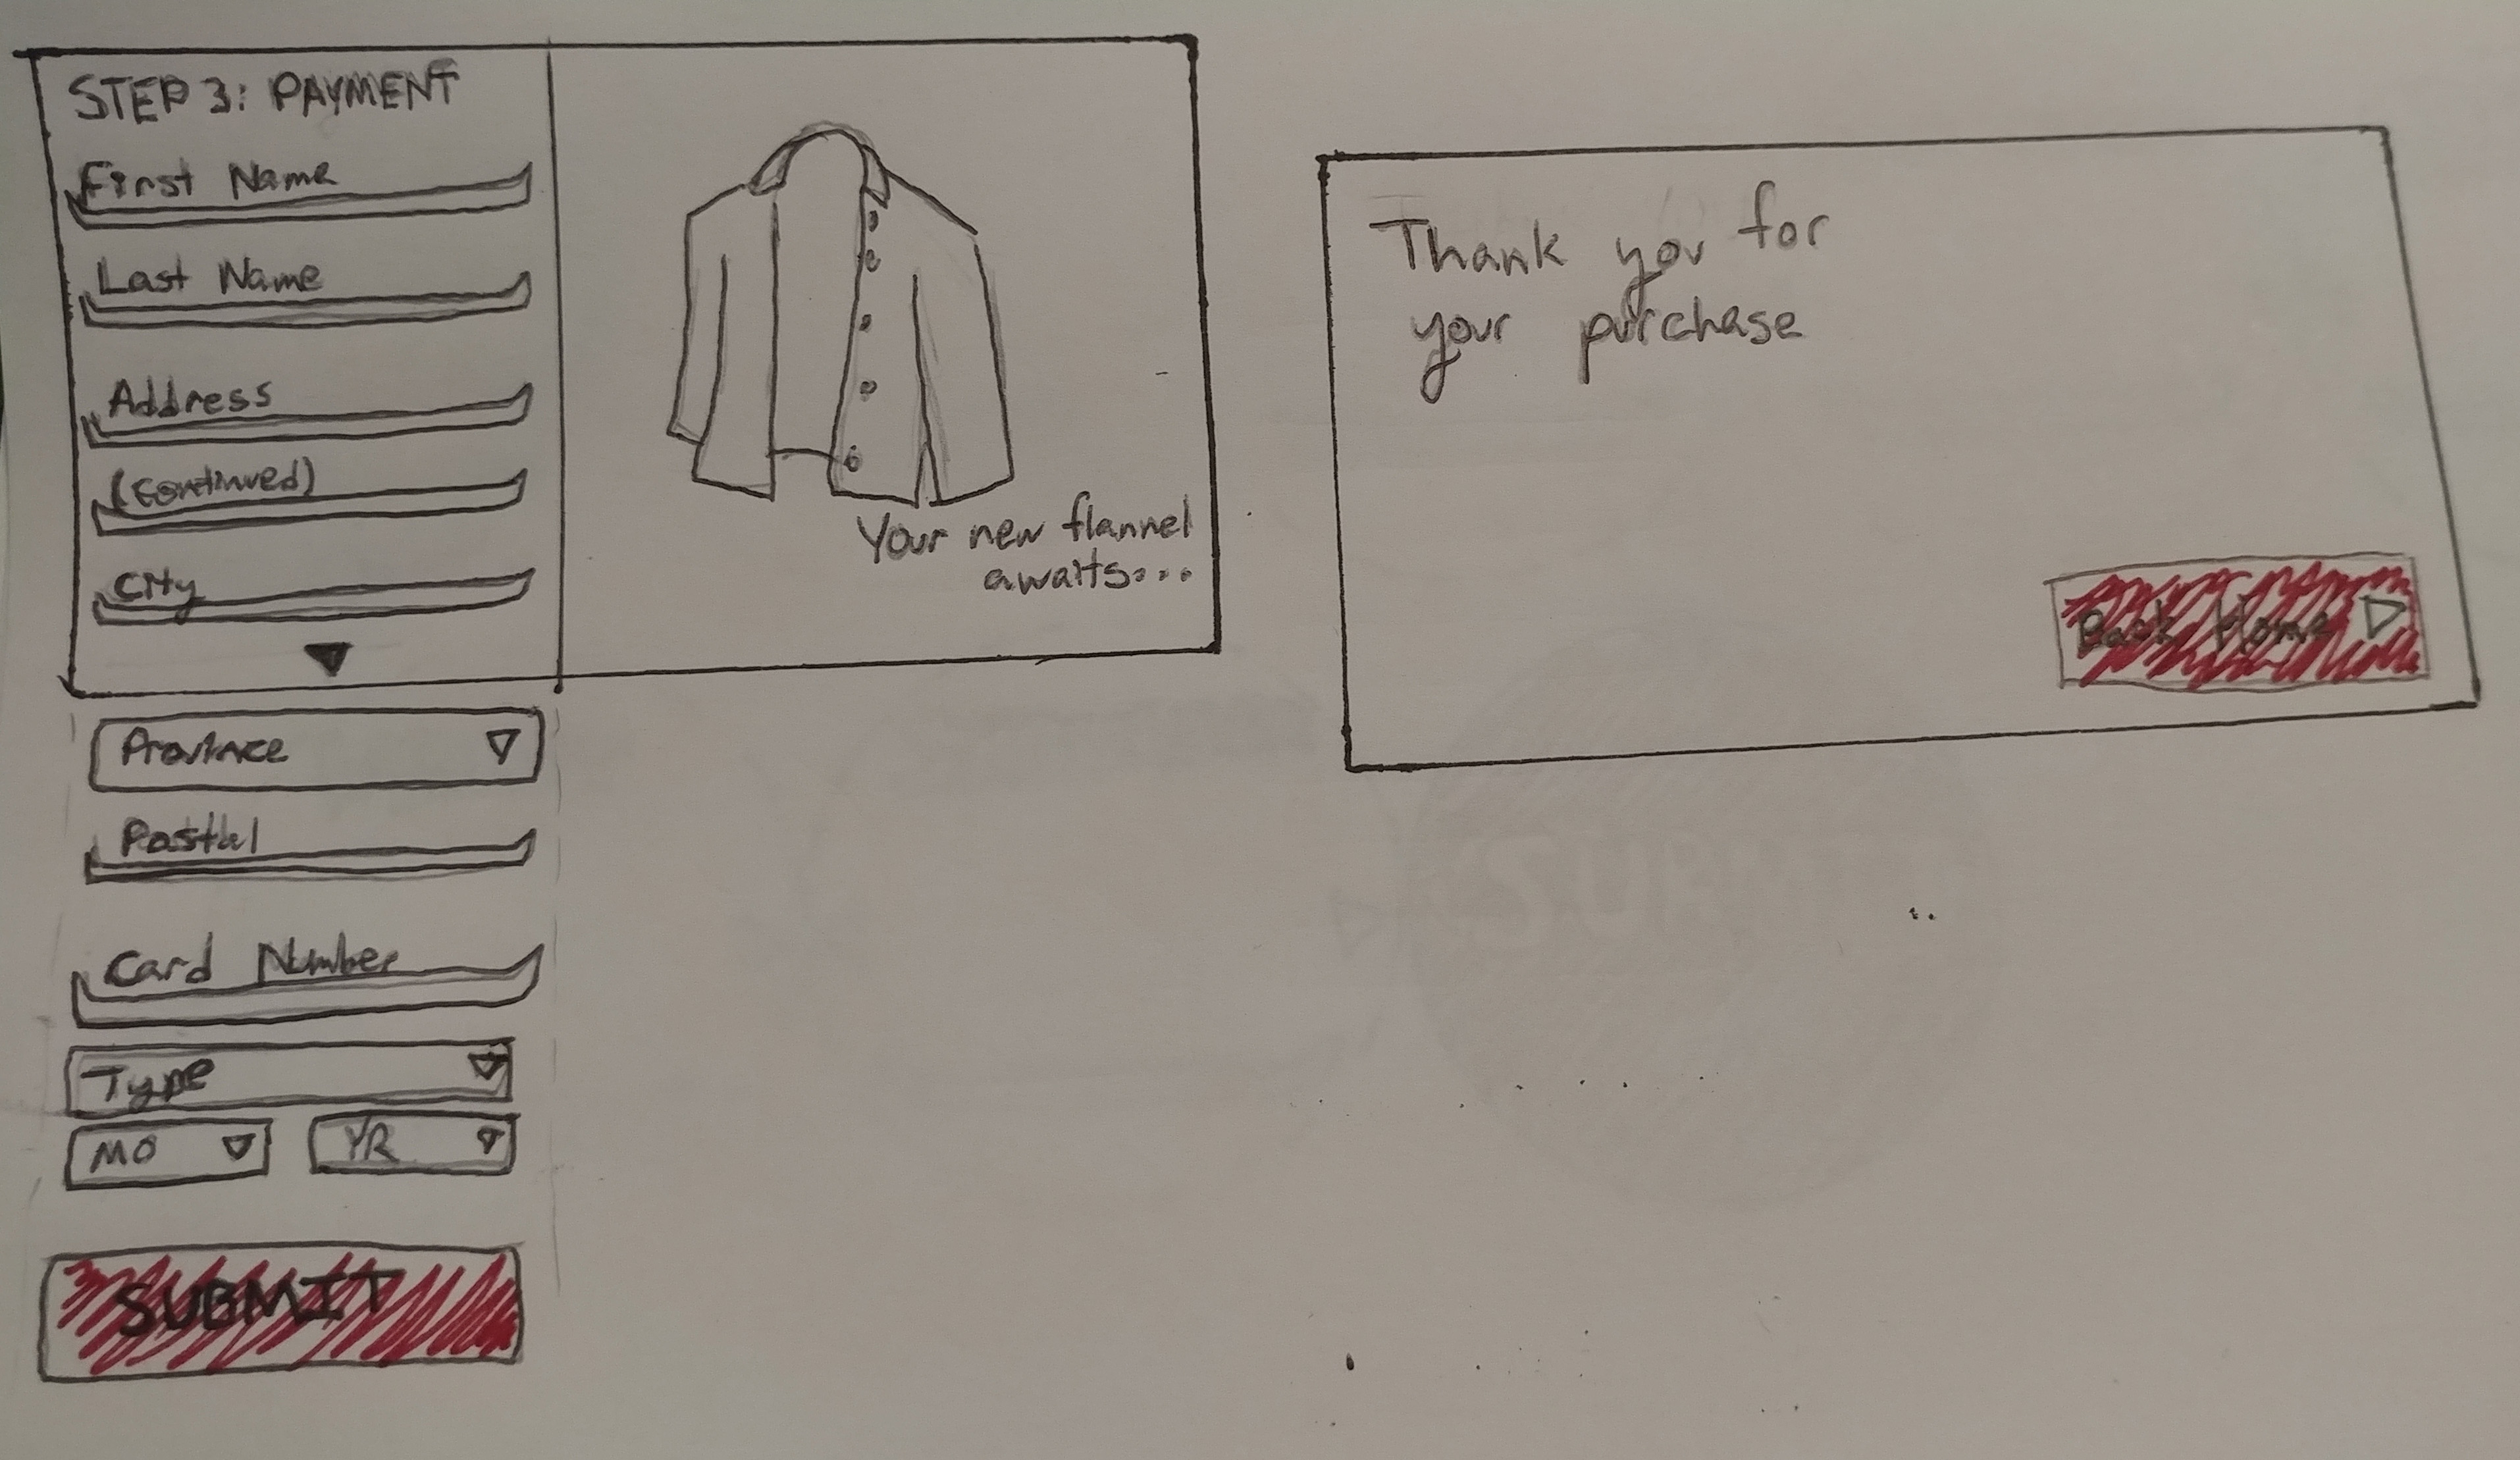 STEP 3: PAYMENT
First Name
Last Name
Address
(continued)
City
Province
Postal
Card Number
Type
MO
YR
SUBMIT
Your new flannel
awaits...
Thank you for
your purchase
Back Home